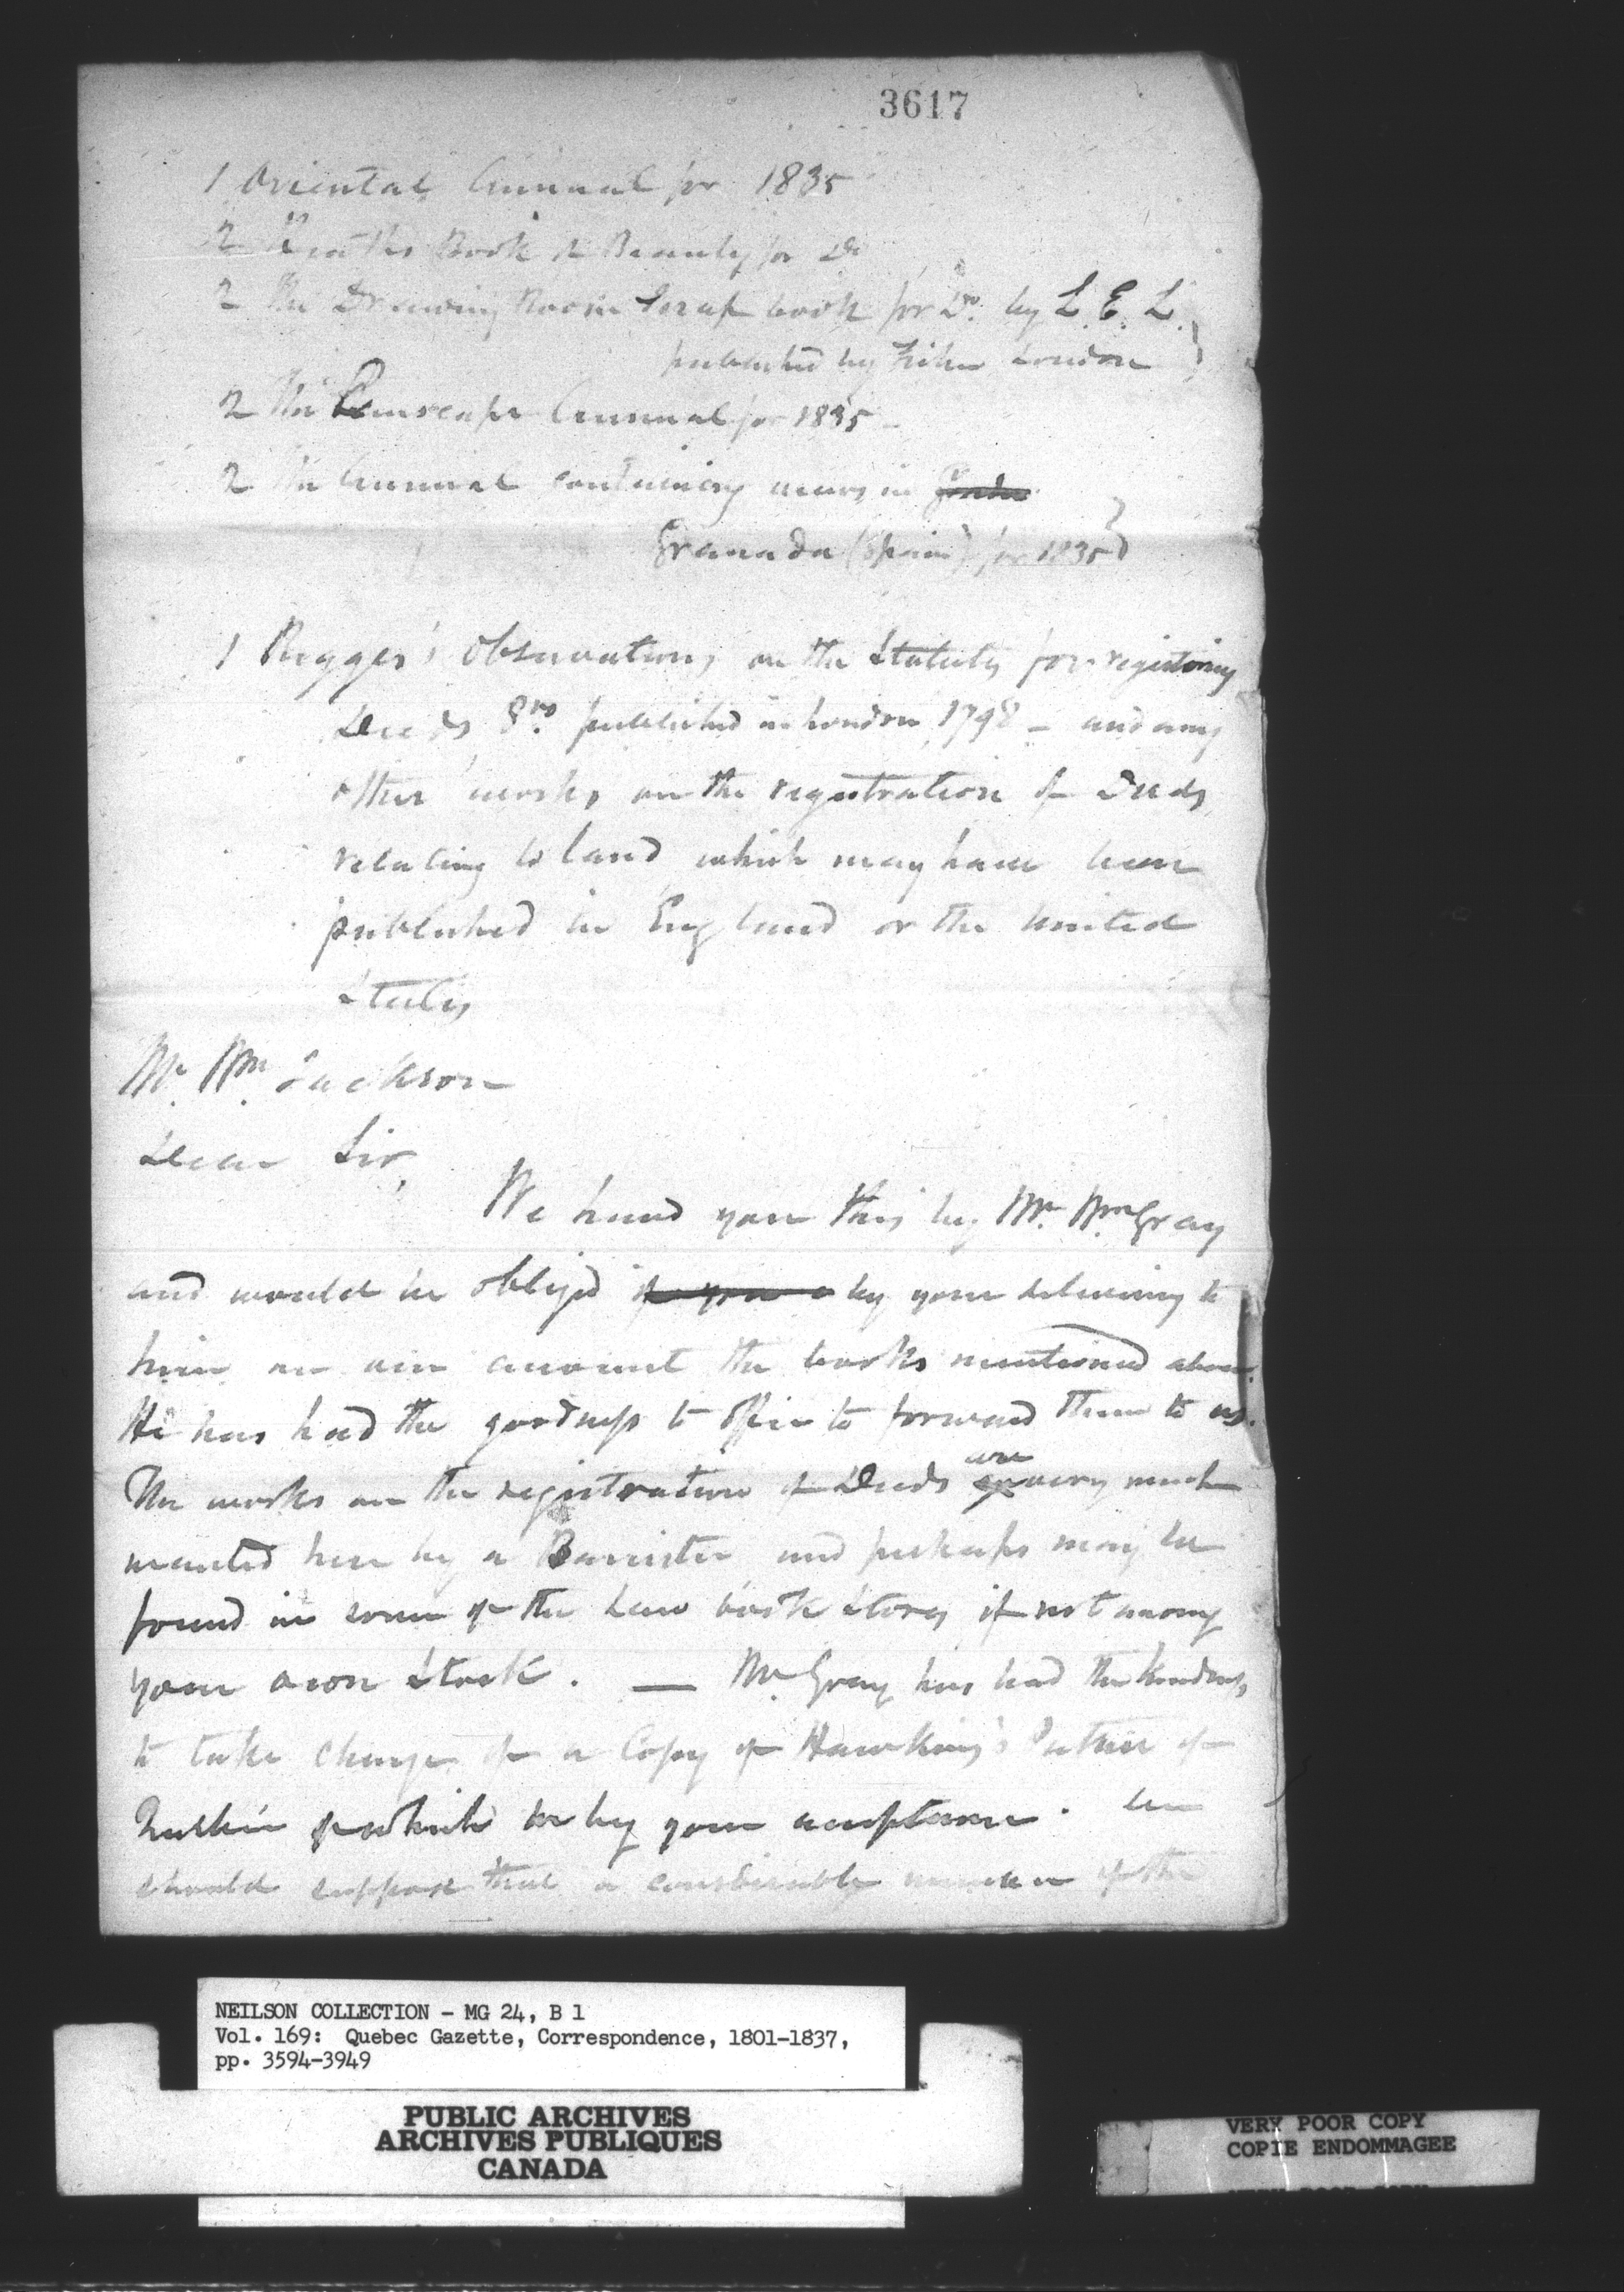 3617
1 Oriental Annual for 1835
2 Heaths Book of Beauty for Do
2 The Drawing Room Scrap book for Do. by L. E. L.
published by Fisher London
2 The Lanscape Annual for 1835
2 The Annual containing views in
Granada (Spain) for 1835
1 Rigges's Observations on the Statutes for registering
Deeds 8vo. published in London 1798 - and any
other works on the registration of Deeds
relating to land which may have been
published in England or the United
States
Mr. Wm. Jackson
Dear Sir,
We hand you this by Mr. Wm. Gray
and would be obliged if you by your delivering to
him on our account the books mentioned above.
He has had the goodness to offer to forward them to us.
The works on the registration of Deeds are very much
wanted here by a Barrister and perhaps may be
found in some of the Law book stores if not among
your own Stock. — Mr Gray has had the kindness
to take charge of a Copy of Hawkins's Picture of
Quebec of which we beg your acceptance. we
should suppose that a considerable number of the
NEILSON COLLECTION - MG 24, B 1
Vol. 169: Quebec Gazette, Correspondence, 1801-1837,
pp. 3594-3949
PUBLIC ARCHIVES
ARCHIVES PUBLIQUES
CANADA
VERY POOR COPY
COPIE ENDOMMAGEE